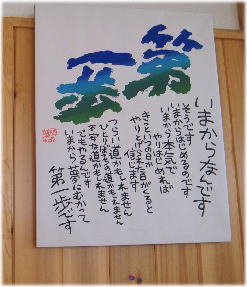 第一歩
いまからなんです
そうです
いまからはじめるのです
いまから本気で
やりはじめれば
きっといつの日か
やりとげられる日がくると
信じます
つらい道かもしれません
ひとりぼっちの道かもしれません
不安な道かもしれません
でもやるんです
いまから夢にむかって
第一歩です